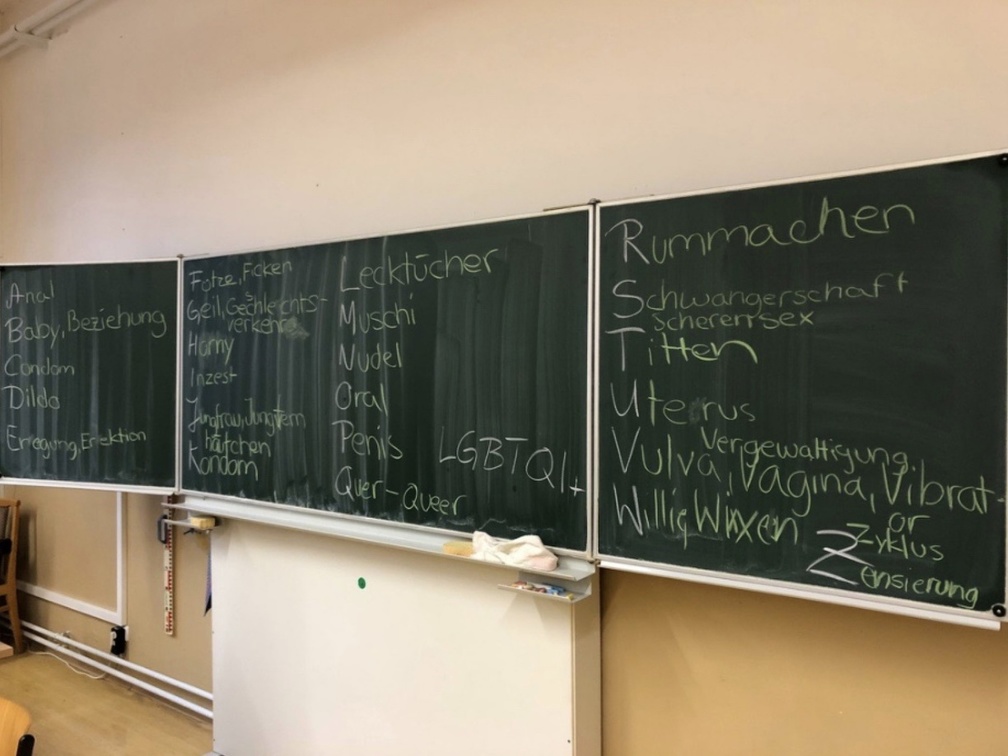 Anal
Baby, Beziehung
Condom
Dildo
Erregung, Erektion
Fotze, Ficken
Geil, Geschlechts-
verkehr
Horny
Inzest
Jungfrau, Jungfern
häutchen
Kondom
Lecktücher
Muschi
Nudel
Oral
Penis
Quer-Queer
LGBTQI+
Rummachen
Schwangerschaft
Scherensex
Titten
Uterus
Vergewaltigung,
Vulva, Vagina, Vibrat
or
Willig, Wixxen
Zyklus
Zensierung